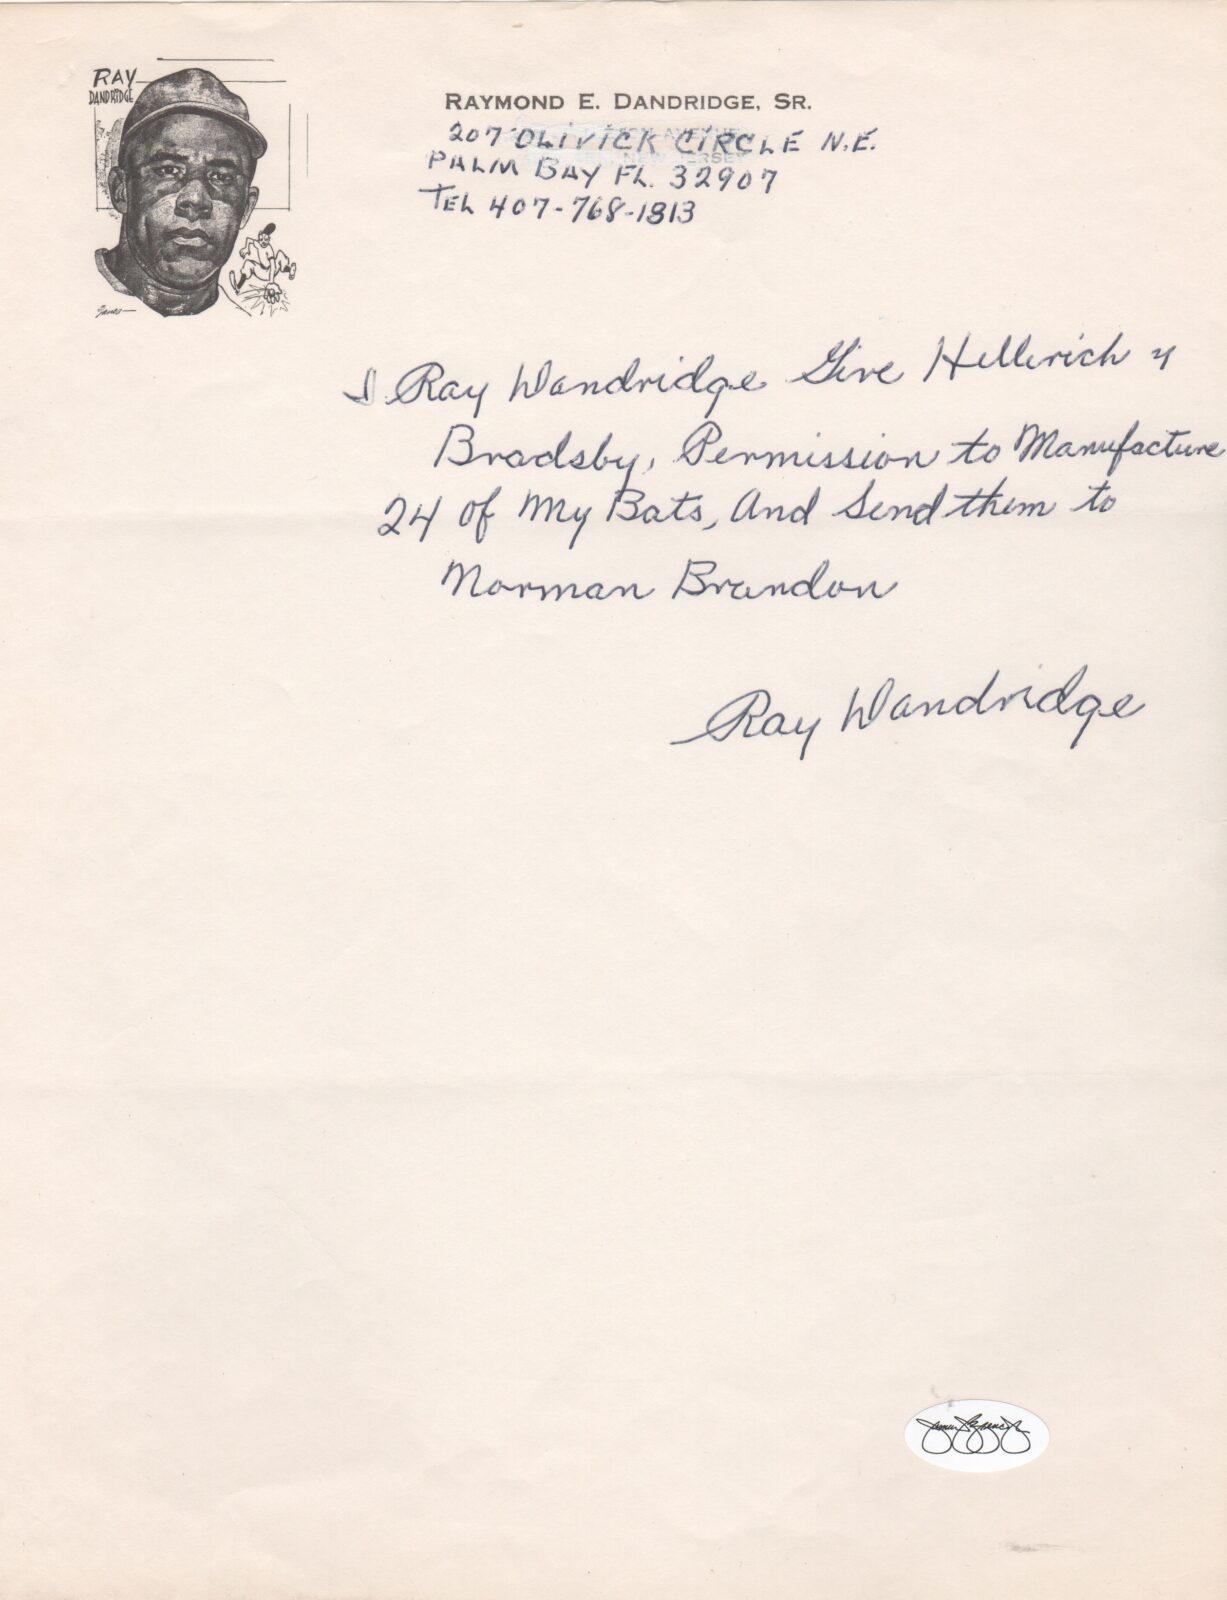 RAY
DANDRIDGE
RAYMOND E. DANDRIDGE, SR.
207 OLIVICK CIRCLE N.E.
PALM BAY FL. 32907
TEL 407-768-1813
I Ray Dandridge Give Hillerich &
Bradsby, Permission to Manufacture
24 of My Bats, And Send them to
Norman Brandon
Ray Dandridge